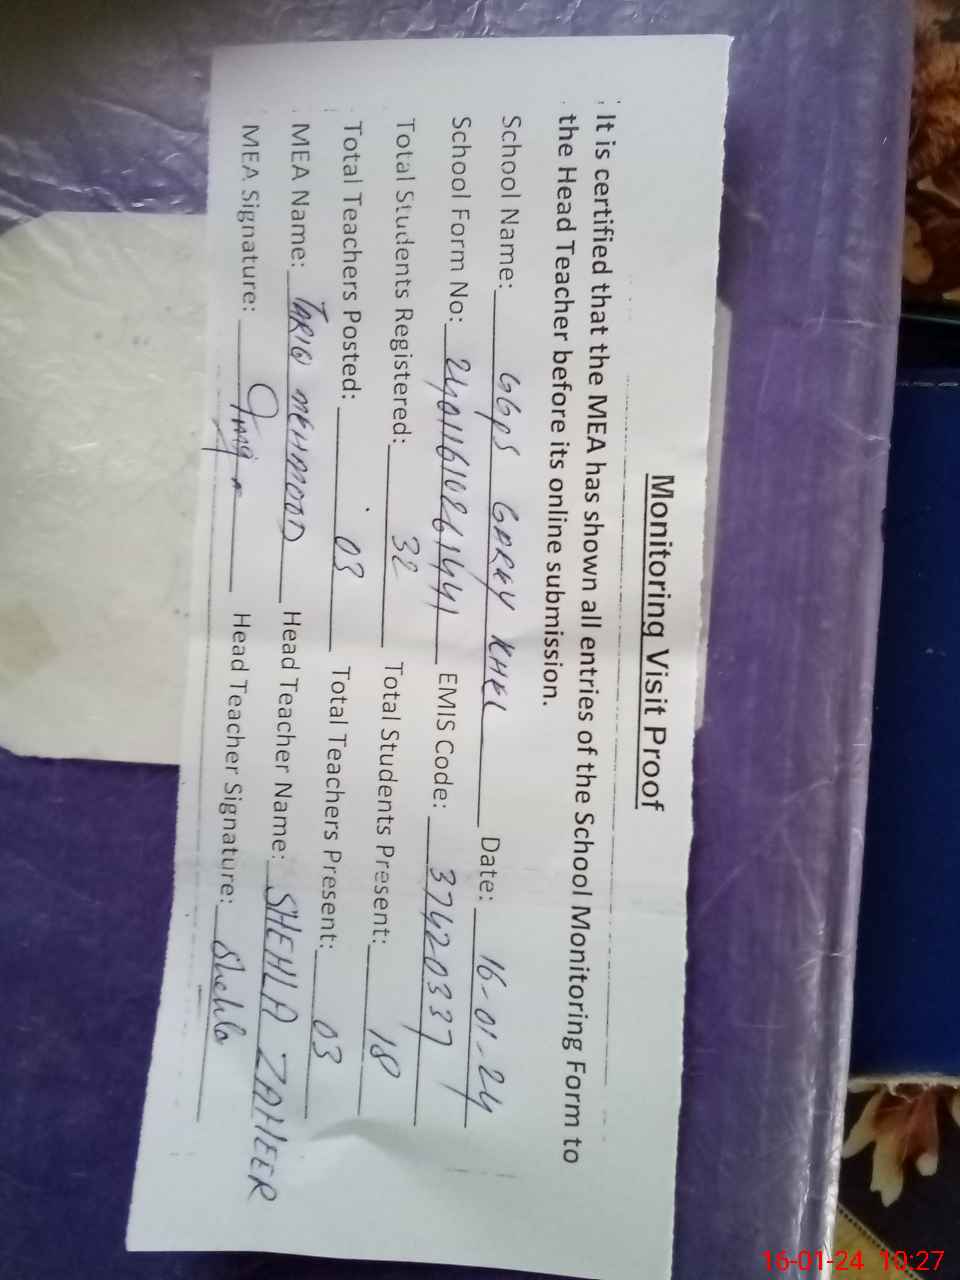 Monitoring Visit Proof
It is certified that the MEA has shown all entries of the School Monitoring Form to
the Head Teacher before its online submission.
School Name: GGPS GARHY KHEL Date: 16-01-24
School Form No: 24011610861441 EMIS Code: 37420337
Total Students Registered: 32 Total Students Present: 18
Total Teachers Posted: 03 Total Teachers Present: 03
MEA Name: TARIQ MEHMOOD Head Teacher Name: SHEHLA ZAHEER
MEA Signature: Head Teacher Signature: Shehla
16-01-24 10:27